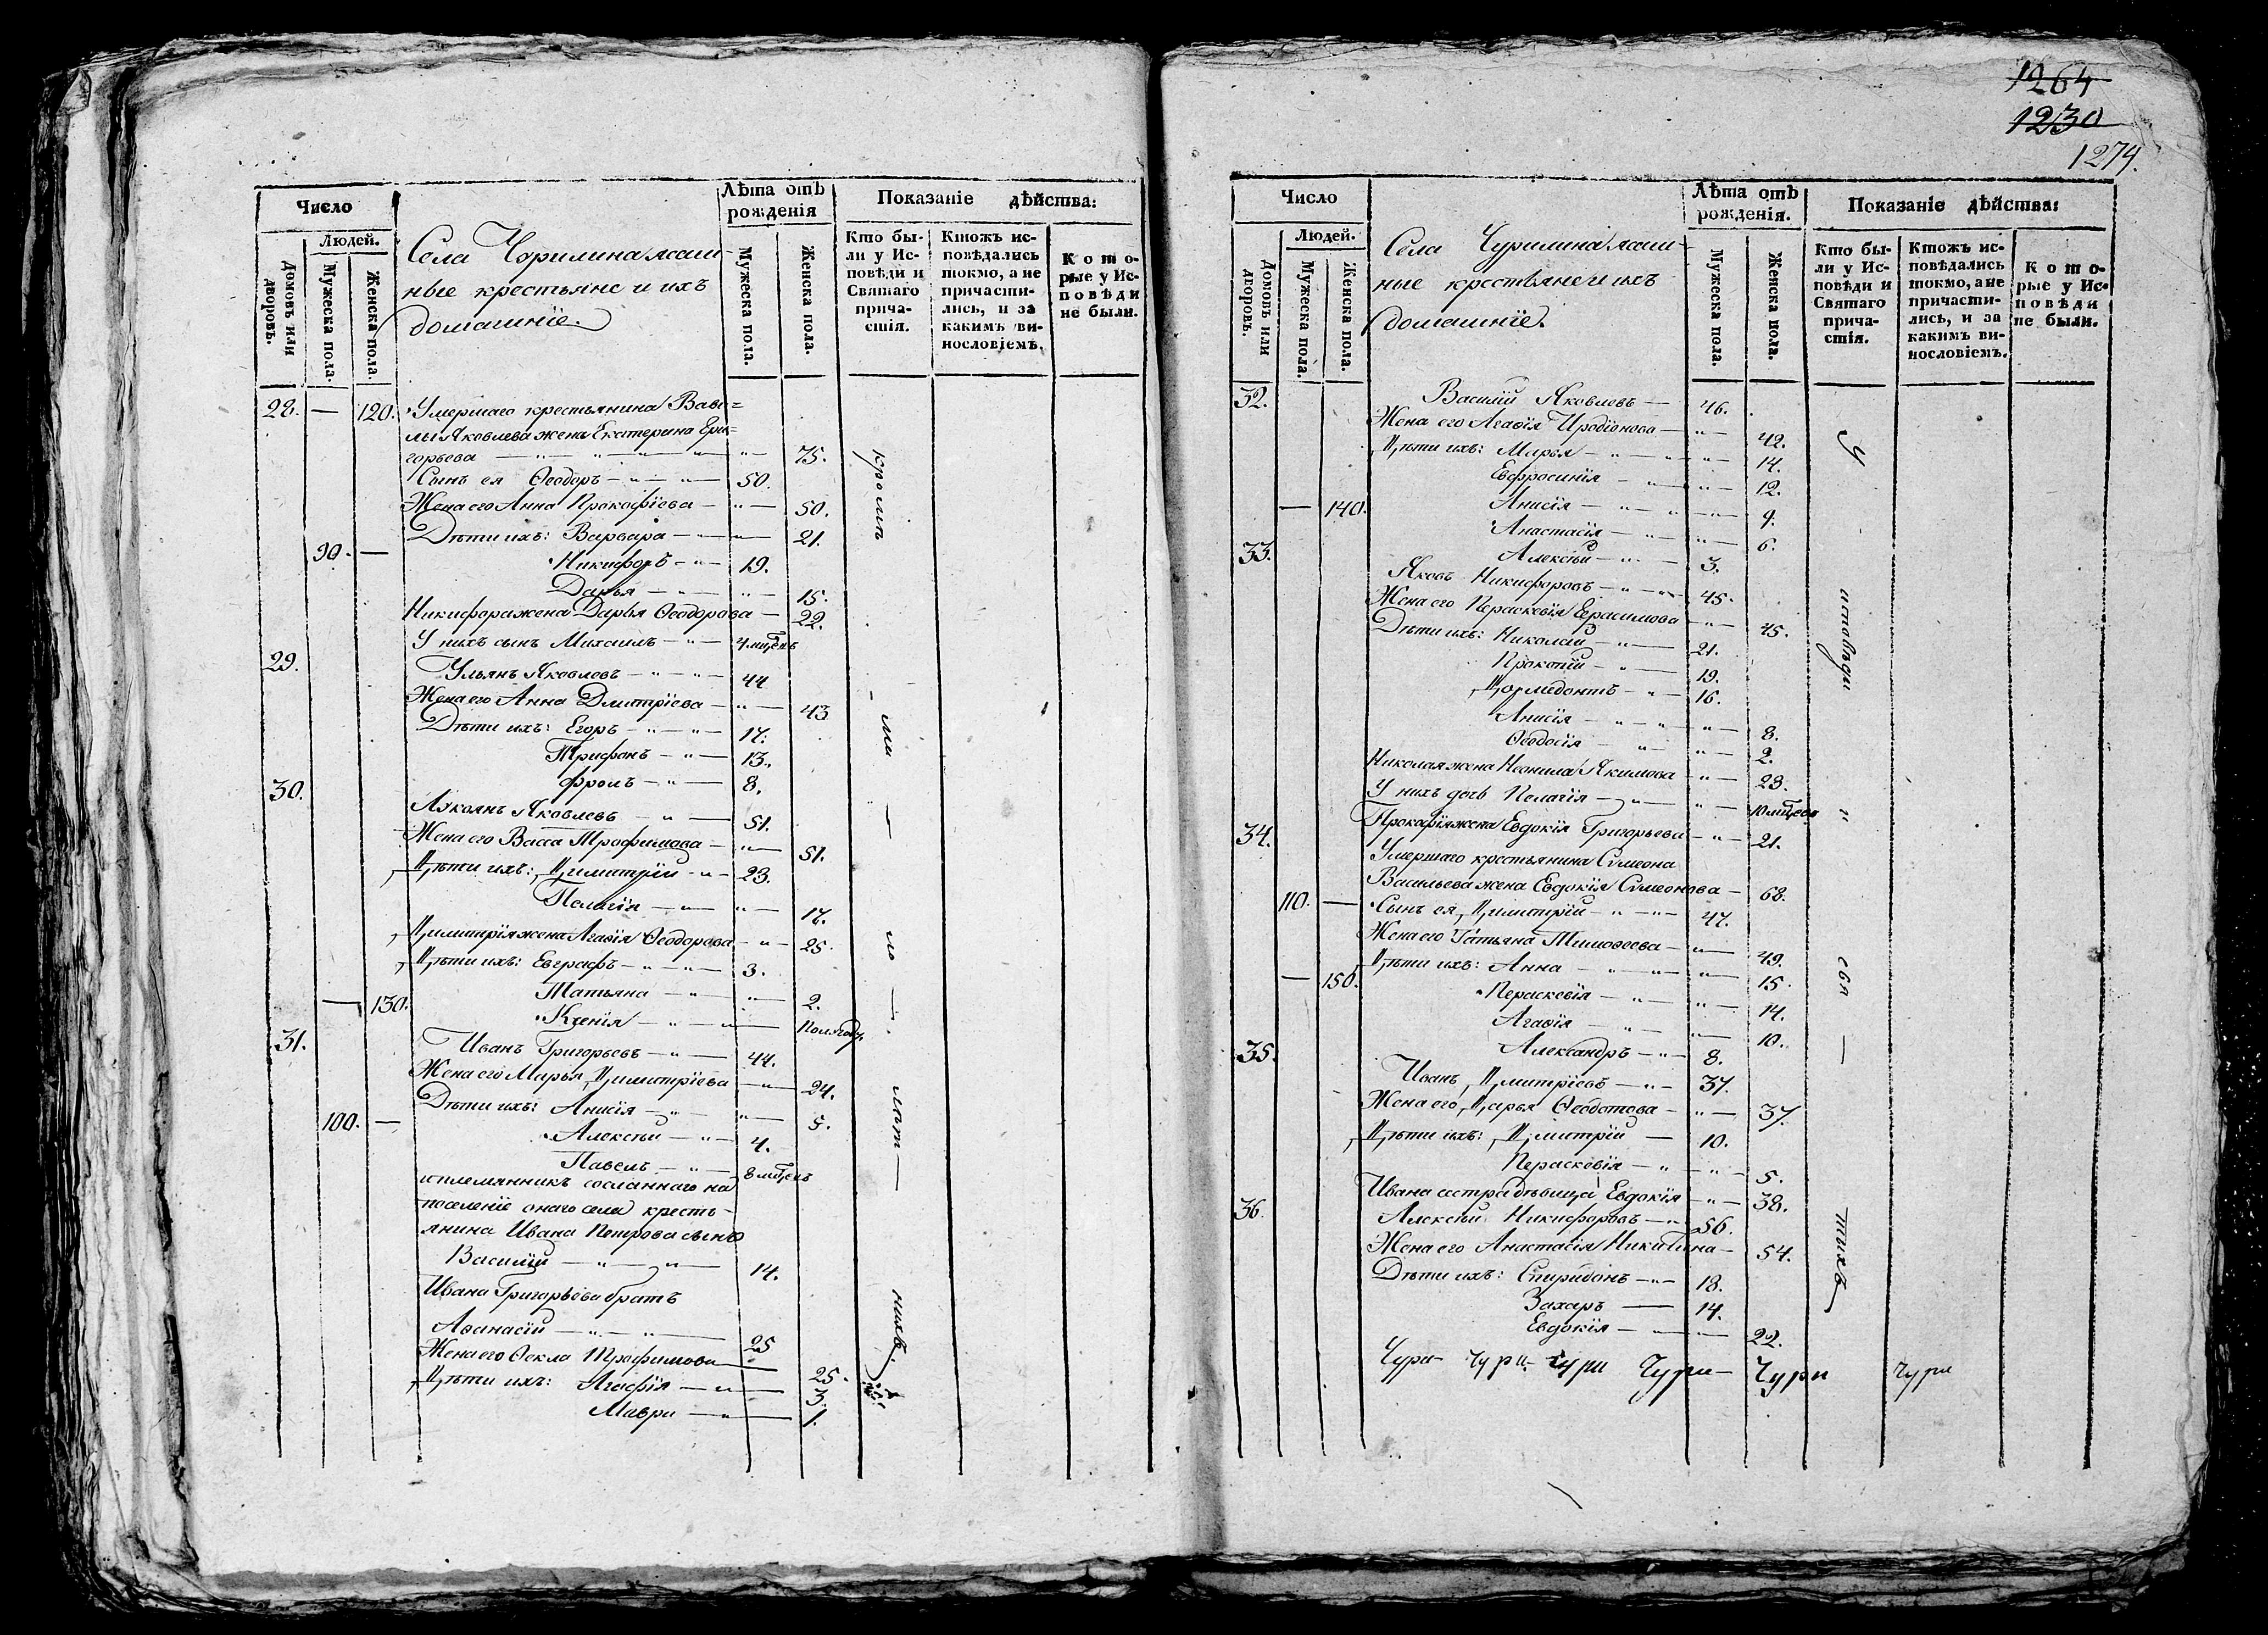 Число
Людей.
Домовъ или дворовъ.
Мужеска пола.
Женска пола.
Села Чурилина ясаш-
ные крестьяне и ихъ
домашніе.
Лѣта отъ рожденія
Мужеска пола.
Женска пола.
Показаніе дѣйства:
Кто бы-
ли у Ис-
повѣди и
Святаго
прича-
стія.
Ктожъ ис-
повѣдались
токмо, а не
причасти-
лись, и за
какимъ ви-
нословіемъ.
Кото-
рые у Ис-
повѣди
не были.
28. — 120. Умершаго крестьянина Вави=
лы Яковлева жена Екатерина Гри=
горьева — 75.
Сынъ ея Ѳеодоръ — 50.
Жена его Анна Прокофіева — 50.
Дѣти ихъ: Варвара — 21.
90. — Никифоръ — 19.
Дарья — 15.
Никифора жена Дарья Ѳеодорова — 22.
У нихъ сынъ Михаилъ — 4 мѣсяцъ
29. Ульянъ Яковлевъ — 44
Жена его Анна Дмитріева — 43
Дѣти ихъ: Егоръ — 17.
Трифонъ — 13.
Фролъ — 8.
30. Яковлевъ — 51.
Жена его Васса Трофимова — 51.
Дѣти ихъ: Димитрій — 23.
Пелагія — 17.
Димитрія жена Агаѳія Ѳеодорова — 25.
Дѣти ихъ: Евграфъ — 3.
Татьяна — 2.
— 130. Ксенія — Полгода
31. Иванъ Григорьевъ — 44.
Жена его Марья Димитріева — 24.
Дѣти ихъ: Анисія — 5.
100. — Алексѣй — 4.
Павелъ — 8 мѣсяцъ
и племянникъ сосланнаго на
поселеніе онаго села кресть-
янина Ивана Петрова сынъ
Василій — 14.
Ивана Григорьева братъ
Аѳанасій — 25
Жена его Ѳекла Трофимова — 25.
Дѣти ихъ: Агафія — 3.
Мавра — 1.
1264
1230
1274.
Число
Людей.
Домовъ или дворовъ.
Мужеска пола.
Женска пола.
Села Чурилина ясаш-
ные крестьяне и ихъ
домашніе.
Лѣта отъ рожденія.
Мужеска пола.
Женска пола.
Показаніе дѣйства:
Кто бы-
ли у Ис-
повѣди и
Святаго
прича-
стія.
Ктожъ ис-
повѣдались
токмо, а не
причасти-
лись, и за
какимъ ви-
нословіемъ.
Кото-
рые у Ис-
повѣди
не были.
32. Василій Яковлевъ — 46.
Жена его Агаѳія Иродіонова — 42.
Дѣти ихъ: Марья — 14.
Евфросинія — 12.
— 140. Анисія — 9.
Анастасія — 6.
Алексѣй — 3.
33. Яковъ Никифоровъ — 45.
Жена его Параскевія Герасимова — 45.
Дѣти ихъ: Николай — 21.
Прокопій — 19.
Дормидонтъ — 16.
Анисія — 8.
Ѳеодосія — 2.
Николая жена Неонила Якимова — 23.
У нихъ дочь Пелагія — 10 мѣсяцъ
Прокофія жена Евдокія Григорьева — 21.
34. Умершаго крестьянина Симеона
Васильева жена Евдокія Симеонова — 68.
110. — Сынъ ея Димитрій — 47.
Жена его Татьяна Тимоѳеева — 49.
Дѣти ихъ: Анна — 15.
— 150. Параскевія — 14.
Агаѳія — 10.
Александръ — 8.
35. Иванъ Дмитріевъ — 37.
Жена его Дарья Ѳеодотова — 37.
Дѣти ихъ: Дмитрій — 10.
Параскевія — 5.
Ивана сестра дѣвица Евдокія — 38.
36. Алексѣй Никифоровъ — 56.
Жена его Анастасія Никитина — 54.
Дѣти ихъ: Спиридонъ — 18.
Захаръ — 14.
Евдокія — 22.
Чури- Чури- Чури Чури- Чури Чури